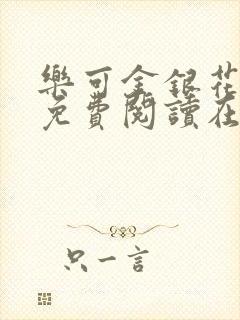 樂可金銀花
免費閱讀在
只一言